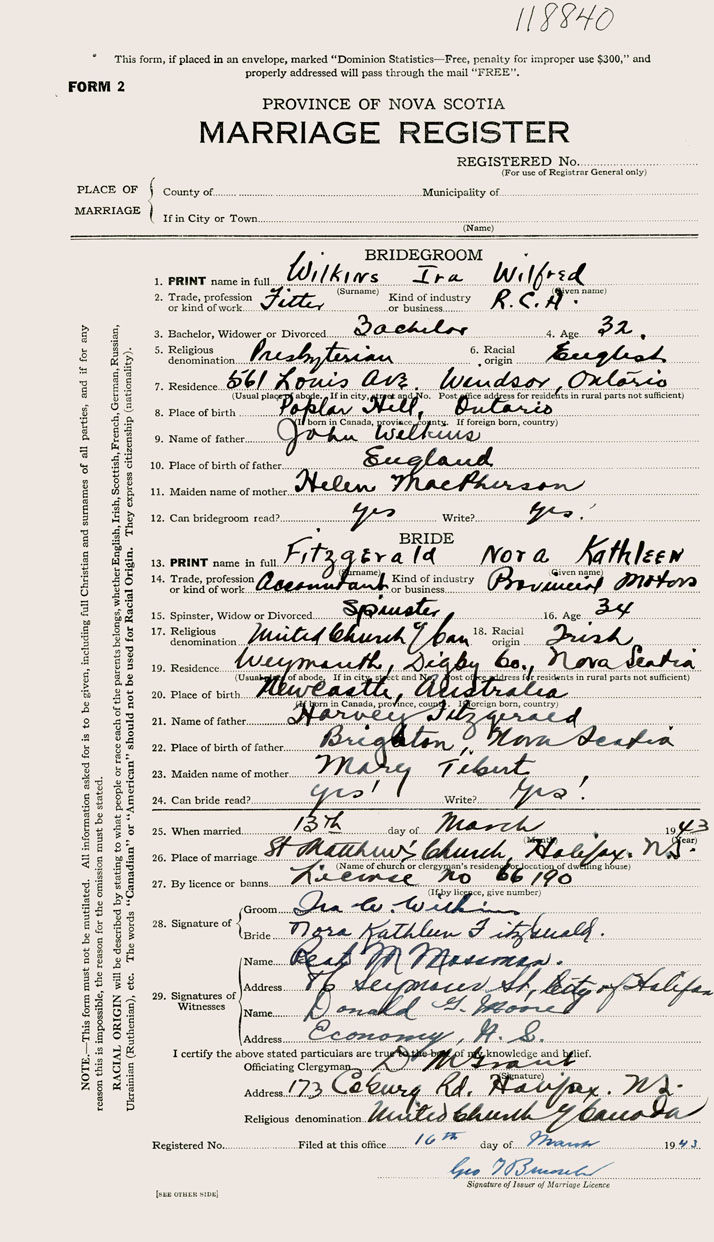 118840
This form, if placed in an envelope, marked "Dominion Statistics—Free, penalty for improper use $300," and
properly addressed will pass through the mail "FREE".
FORM 2
PROVINCE OF NOVA SCOTIA
MARRIAGE REGISTER
REGISTERED No.
(For use of Registrar General only)
PLACE OF MARRIAGE
County of Municipality of
If in City or Town
(Name)
BRIDEGROOM
1. PRINT name in full Wilkins Ira Wilfred
(Surname) (Given name)
2. Trade, profession or kind of work Fitter Kind of industry or business R.C.A.
3. Bachelor, Widower or Divorced Bachelor 4. Age 32.
5. Religious denomination Presbyterian 6. Racial origin English
7. Residence 561 Louis Ave. Windsor, Ontario
(Usual place of abode. If in city, street and No. Post office address for residents in rural parts not sufficient)
8. Place of birth Poplar Hill, Ontario
(If born in Canada, province, county. If foreign born, country)
9. Name of father John Wilkins
10. Place of birth of father England
11. Maiden name of mother Helen MacPherson
12. Can bridegroom read? yes Write? yes!
BRIDE
13. PRINT name in full Fitzgerald Nora Kathleen
(Surname) (Given name)
14. Trade, profession or kind of work Accountant Kind of industry or business Provincial Motors
15. Spinster, Widow or Divorced Spinster 16. Age 34
17. Religious denomination United Church of Can 18. Racial origin Irish
19. Residence Weymouth, Digby Co., Nova Scotia
(Usual place of abode. If in city, street and No. Post office address for residents in rural parts not sufficient)
20. Place of birth Newcastle, Australia
(If born in Canada, province, county. If foreign born, country)
21. Name of father Harvey Fitzgerald
22. Place of birth of father Brighton, Nova Scotia
23. Maiden name of mother Mary Tibert
24. Can bride read? yes! Write? Yes!
25. When married 13th day of March 1943
(Month) (Year)
26. Place of marriage St Matthew's Church, Halifax. N.S.
(Name of church or clergyman's residence or location of dwelling house)
27. By licence or banns License no 66190
(If by licence, give number)
28. Signature of
Groom Ira W. Wilkins
Bride Nora Kathleen Fitzgerald.
29. Signatures of Witnesses
Name M Mossman.
Address 76 Seymour St, City of Halifax
Name Donald G. Moore
Address Economy, N.S.
I certify the above stated particulars are true to the best of my knowledge and belief.
Officiating Clergyman D M Grant
(Signature)
Address 173 Coburg Rd. Halifax. N.S.
Religious denomination United Church of Canada
Registered No. Filed at this office 16th day of March 1943
Geo
Signature of Issuer of Marriage Licence
[SEE OTHER SIDE]
NOTE.—This form must not be mutilated. All information asked for is to be given, including full Christian and surnames of all parties, and if for any
reason this is impossible, the reason for the omission must be stated.
RACIAL ORIGIN will be described by stating to what people or race each of the parents belongs, whether English, Irish, Scottish, French, German, Russian,
Ukrainian (Ruthenian), etc. The words "Canadian" or "American" should not be used for Racial Origin. They express citizenship (nationality).